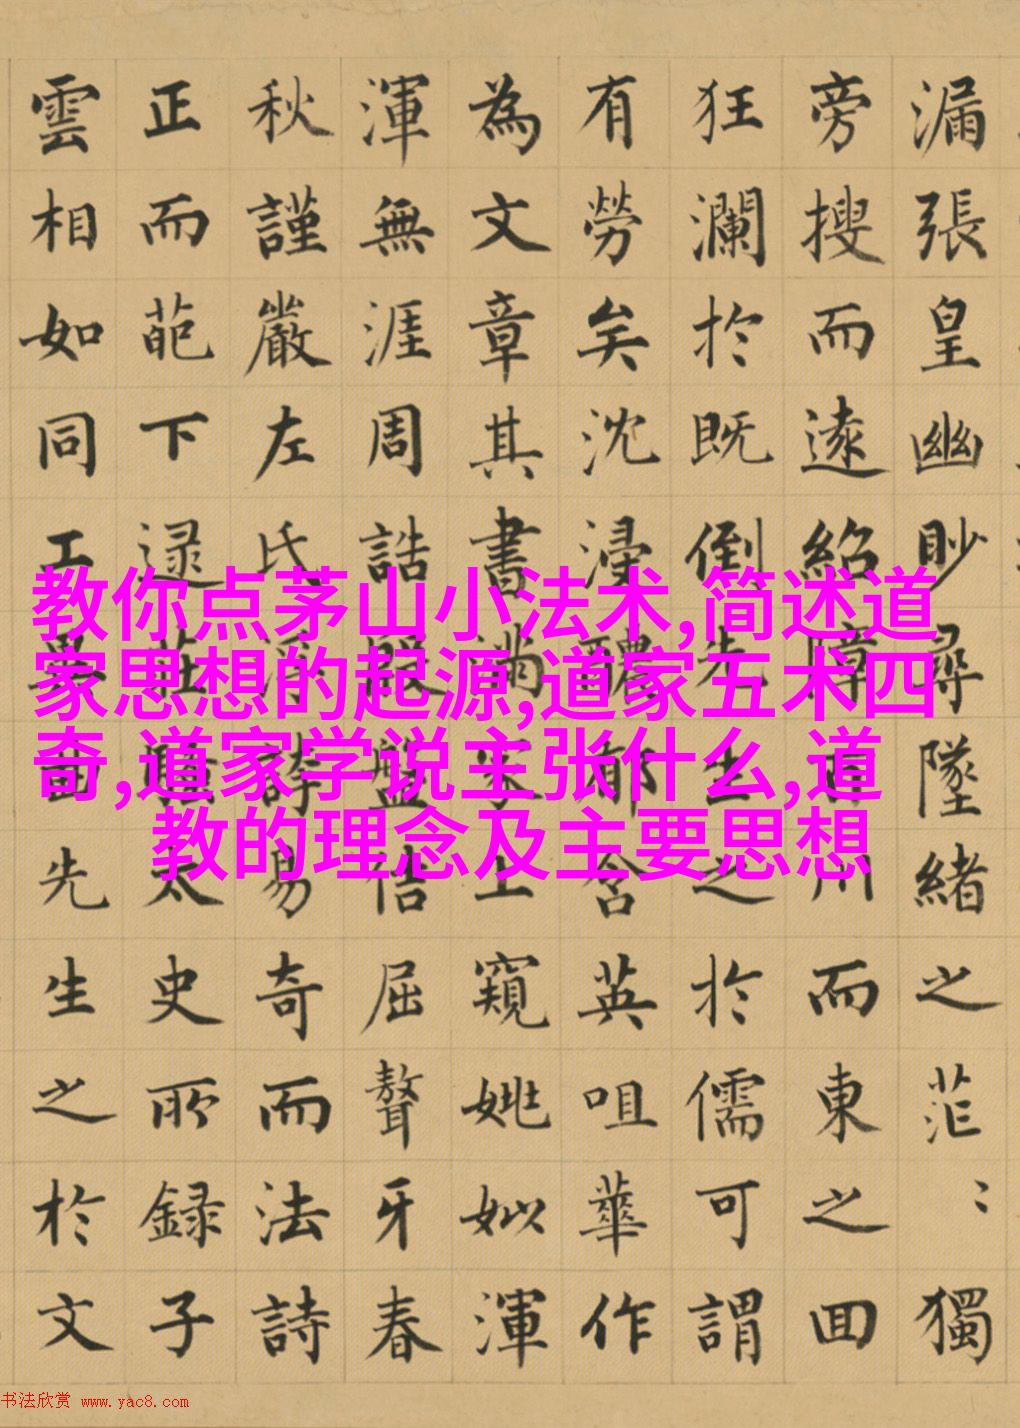 漏張皇幽眇尋墜緒之茫〻獨
旁搜而遠紹障百川而東之回
狂瀾於既倒先生之於儒可謂
有勞矣沈浸醲郁含英咀華作
為文章其書滿家上窺姚姒渾
渾無涯周誥殷盤佶屈聱牙春
秋謹嚴左氏浮誇易奇而法詩
正而葩下逮莊騷太史所録子
雲相如同工異曲先生之於文
教你点茅山小法术,简述道
家思想的起源,道家五术四
奇,道家学说主张什么,道
教的理念及主要思想
书法欣赏 www.yac8.com